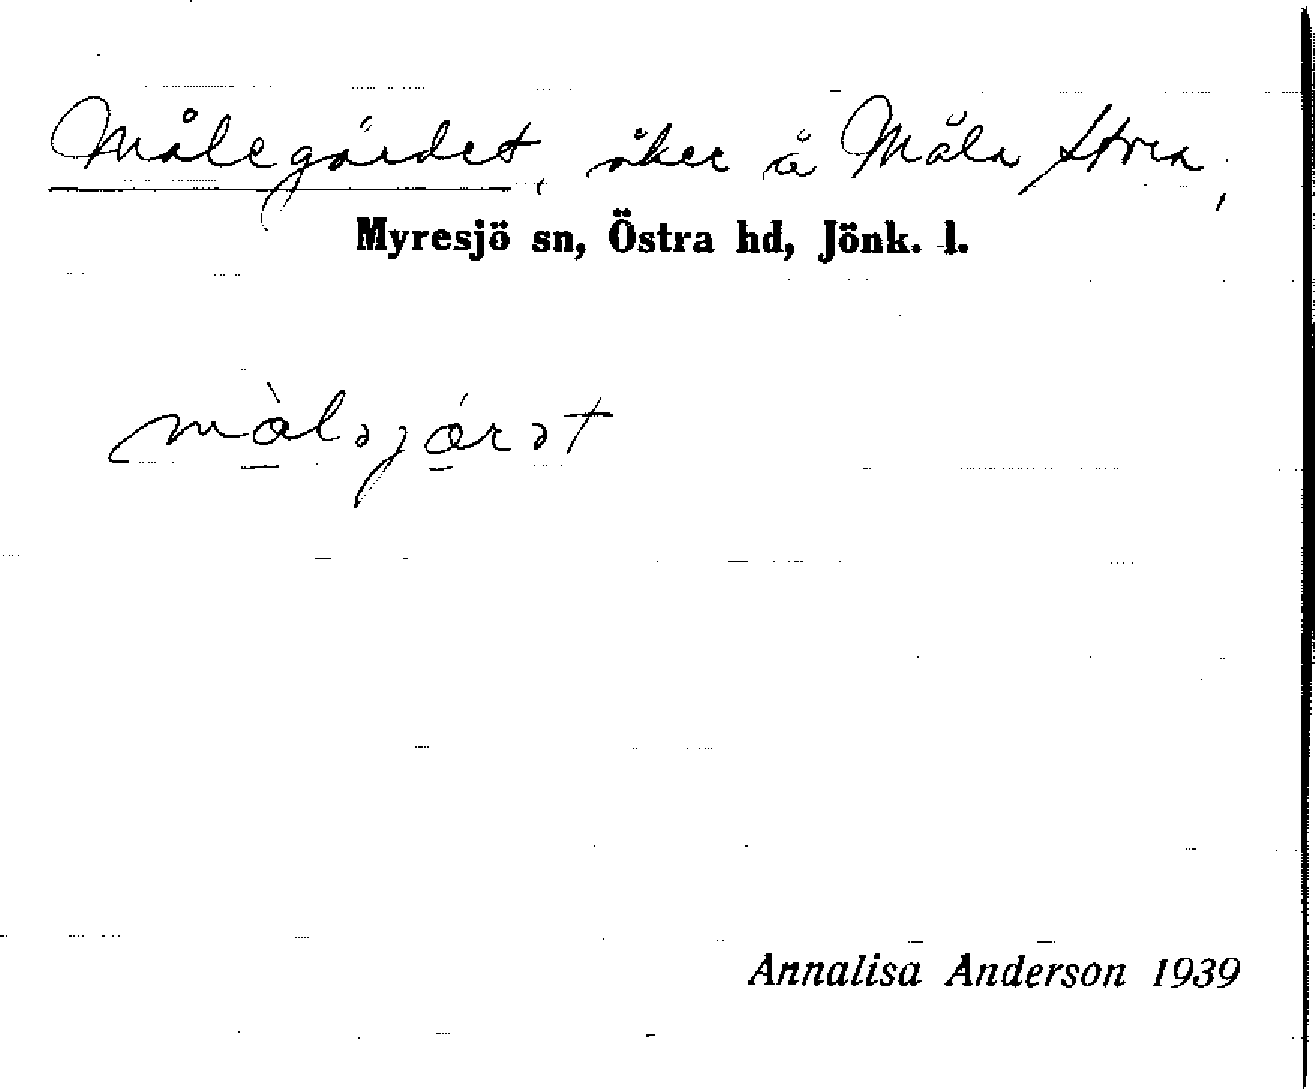 Målegärdet, åker å Måla Stora,
Myresjö sn, Östra hd, Jönk. l.
màləjárət
Annalisa Anderson 1939